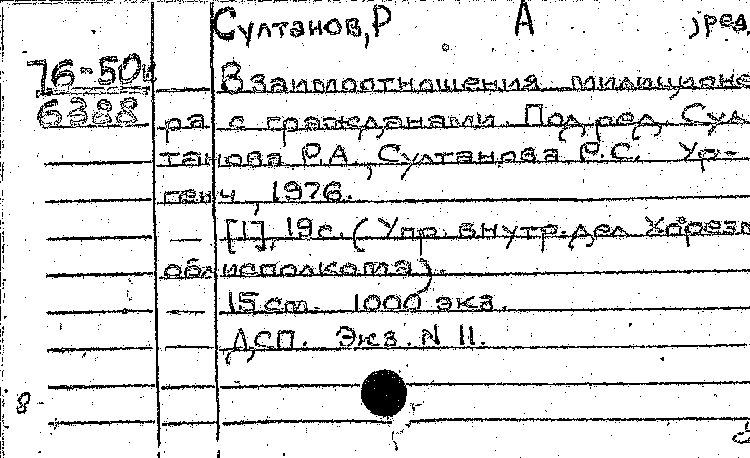 Султанов, Р А , ред.
76-50
6388
Взаимоотношения милиционе
ра с гражданами. Под ред. Сул-
танова Р.А., Султанова Р.С. Ур-
генч, 1976.
[1], 19 с. (Упр. внутр. дел Хорезм
облисполкома).
15 см. 1000 экз.
ДСП. Экз. N 11.
8